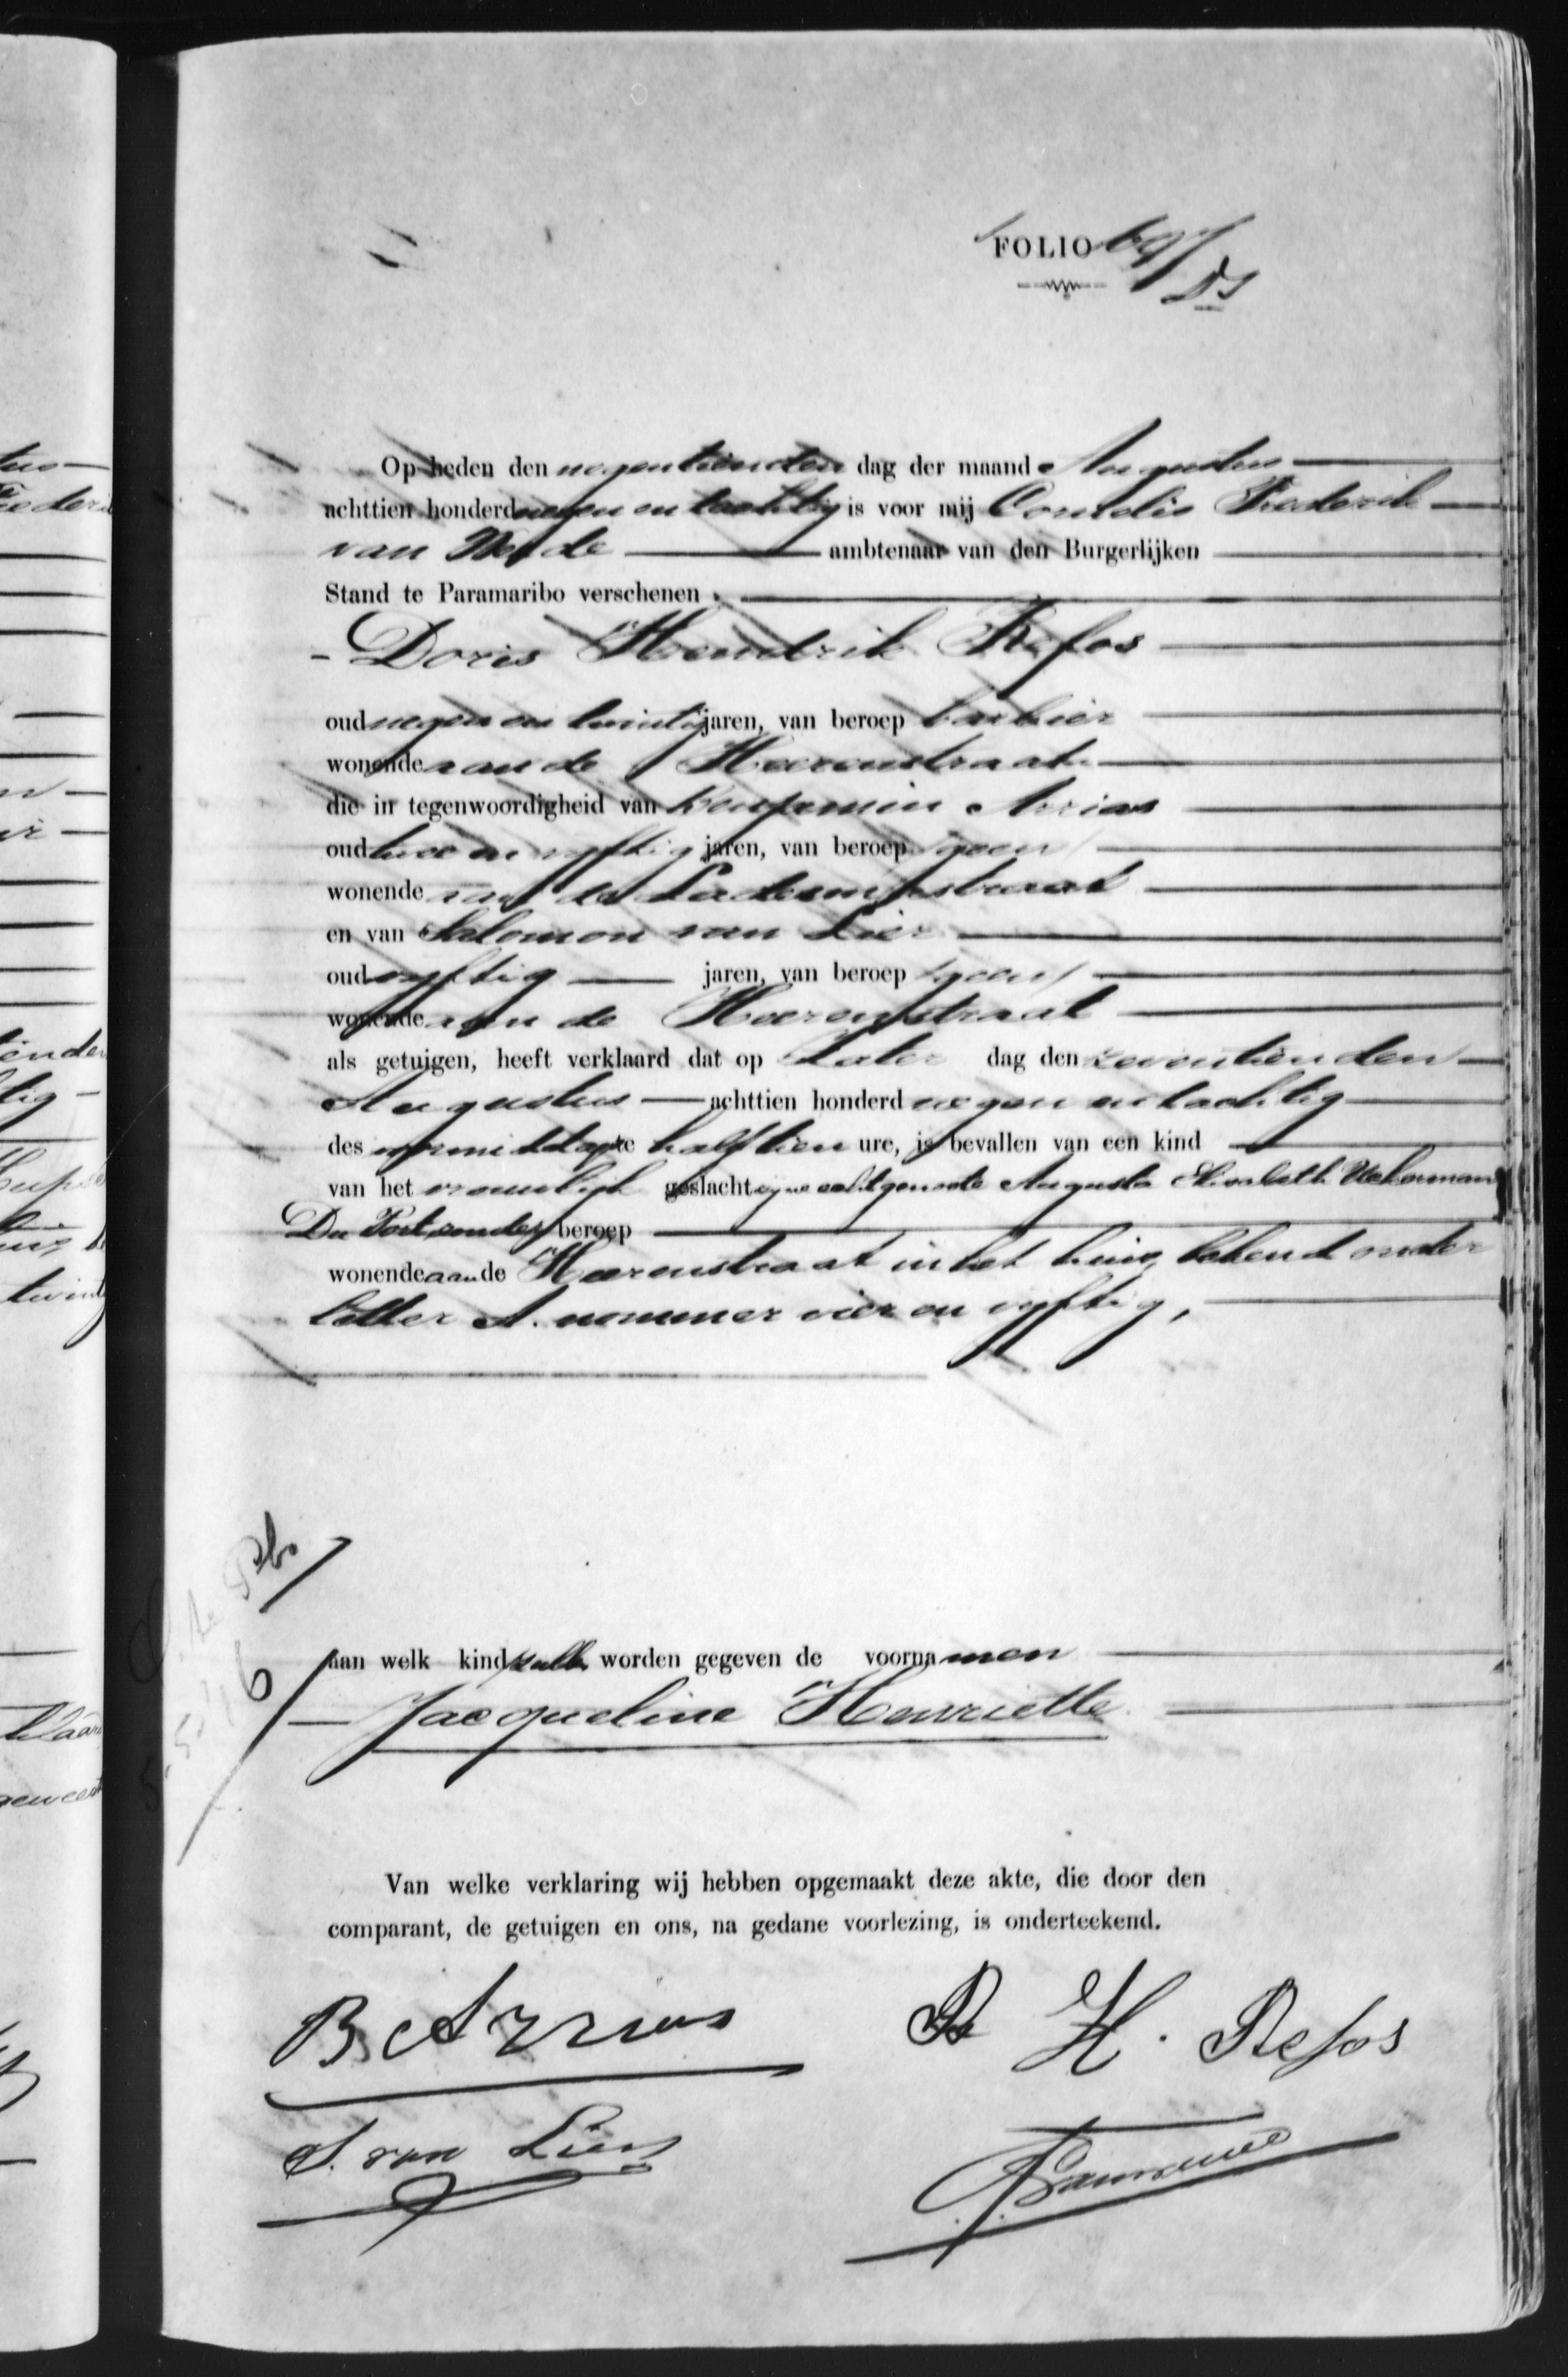 FOLIO 69
Op heden den negentienden dag der maand Augustus
achttien honderd negen en tachtig is voor mij Cornelis Frederik
van ambtenaar van den Burgerlijken
Stand te Paramaribo verschenen
Doris Hendrik Refos
oud negen en twintig jaren, van beroep barbier
wonende aan de Heerenstraat
die in tegenwoordigheid van Benjamin Arrias
oud twee en vyftig jaren, van beroep geen
wonende aan de straat
en van Salomon van Lier
oud vyftig jaren, van beroep geen
wonende aan de Heerenstraat
als getuigen, heeft verklaard dat op Zater dag den zeventienden
Augustus achttien honderd negen en tachtig
des voormiddags te half tien ure, is bevallen van een kind
van het vrouwelyk geslacht zyne echtgenoote Augusta Elisabeth
Du Port zonder beroep
wonende aan de Heerenstraat in het huis bekend onder
letter A. nommer vier en vyftig,
Pbo
aan welk kind zullen worden gegeven de voornamen
Jacqueline Henriette
Van welke verklaring wij hebben opgemaakt deze akte, die door den
comparant, de getuigen en ons, na gedane voorlezing, is onderteekend.
B Arrias
H. Refos
S. van Lier